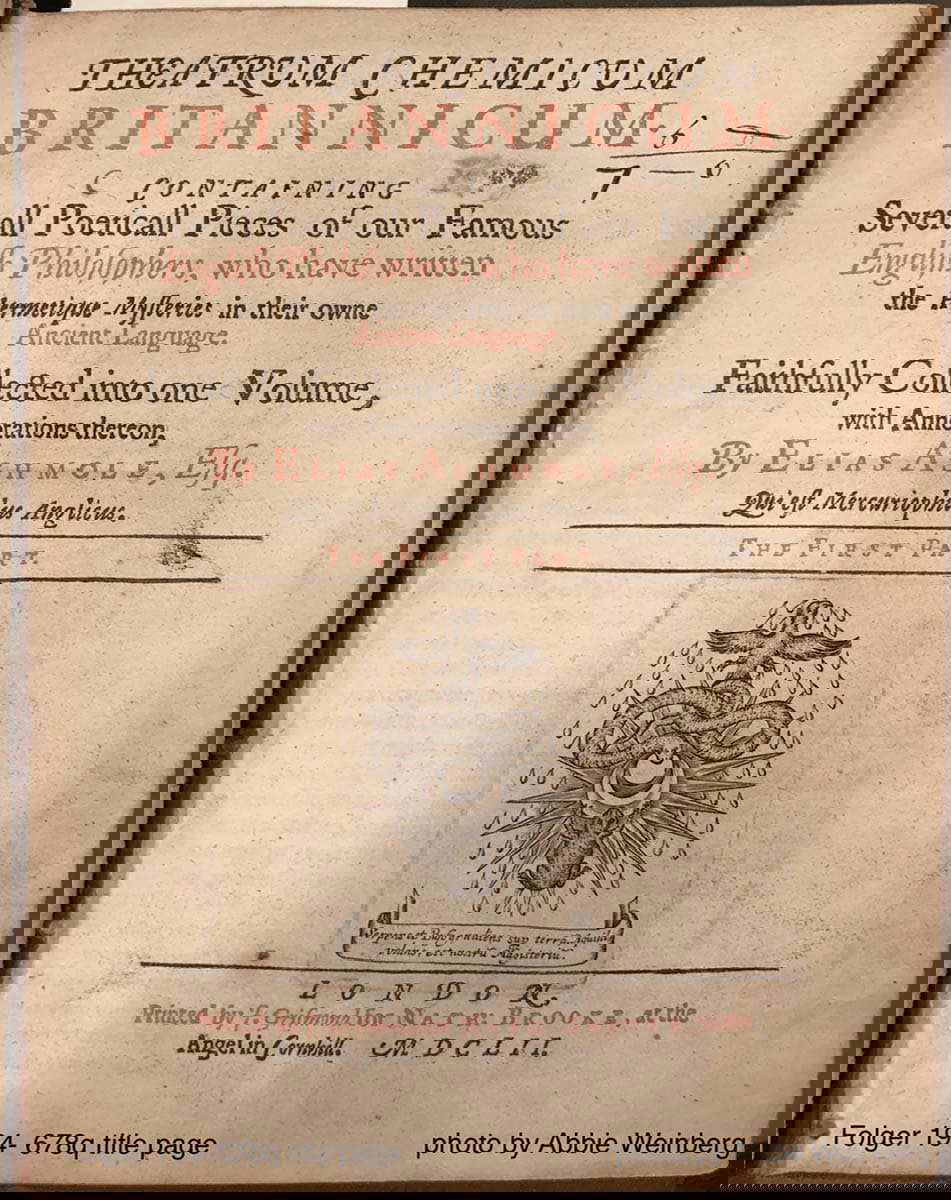 THEATRUM CHEMICUM
BRITANNICUM
CONTAINING
Severall Poeticall Pieces of our Famous
English Philosophers, who have written
the Hermetique Mysteries in their owne
Ancient Language.
Faithfully Collected into one Volume,
with Annotations thereon,
By ELIAS ASHMOLE, Esq.
Qui est Mercuriophilus Anglicus.
THE FIRST PART.
Serpens et Bufo gradiens sup terrā, Aquila
volans, est nostrū Magisteriū.
LONDON,
Printed by J. Grismond for NATH: BROOKE, at the
Angel in Cornhill. MDCLII.
Folger 194- 678q title page
photo by Abbie Weinberg